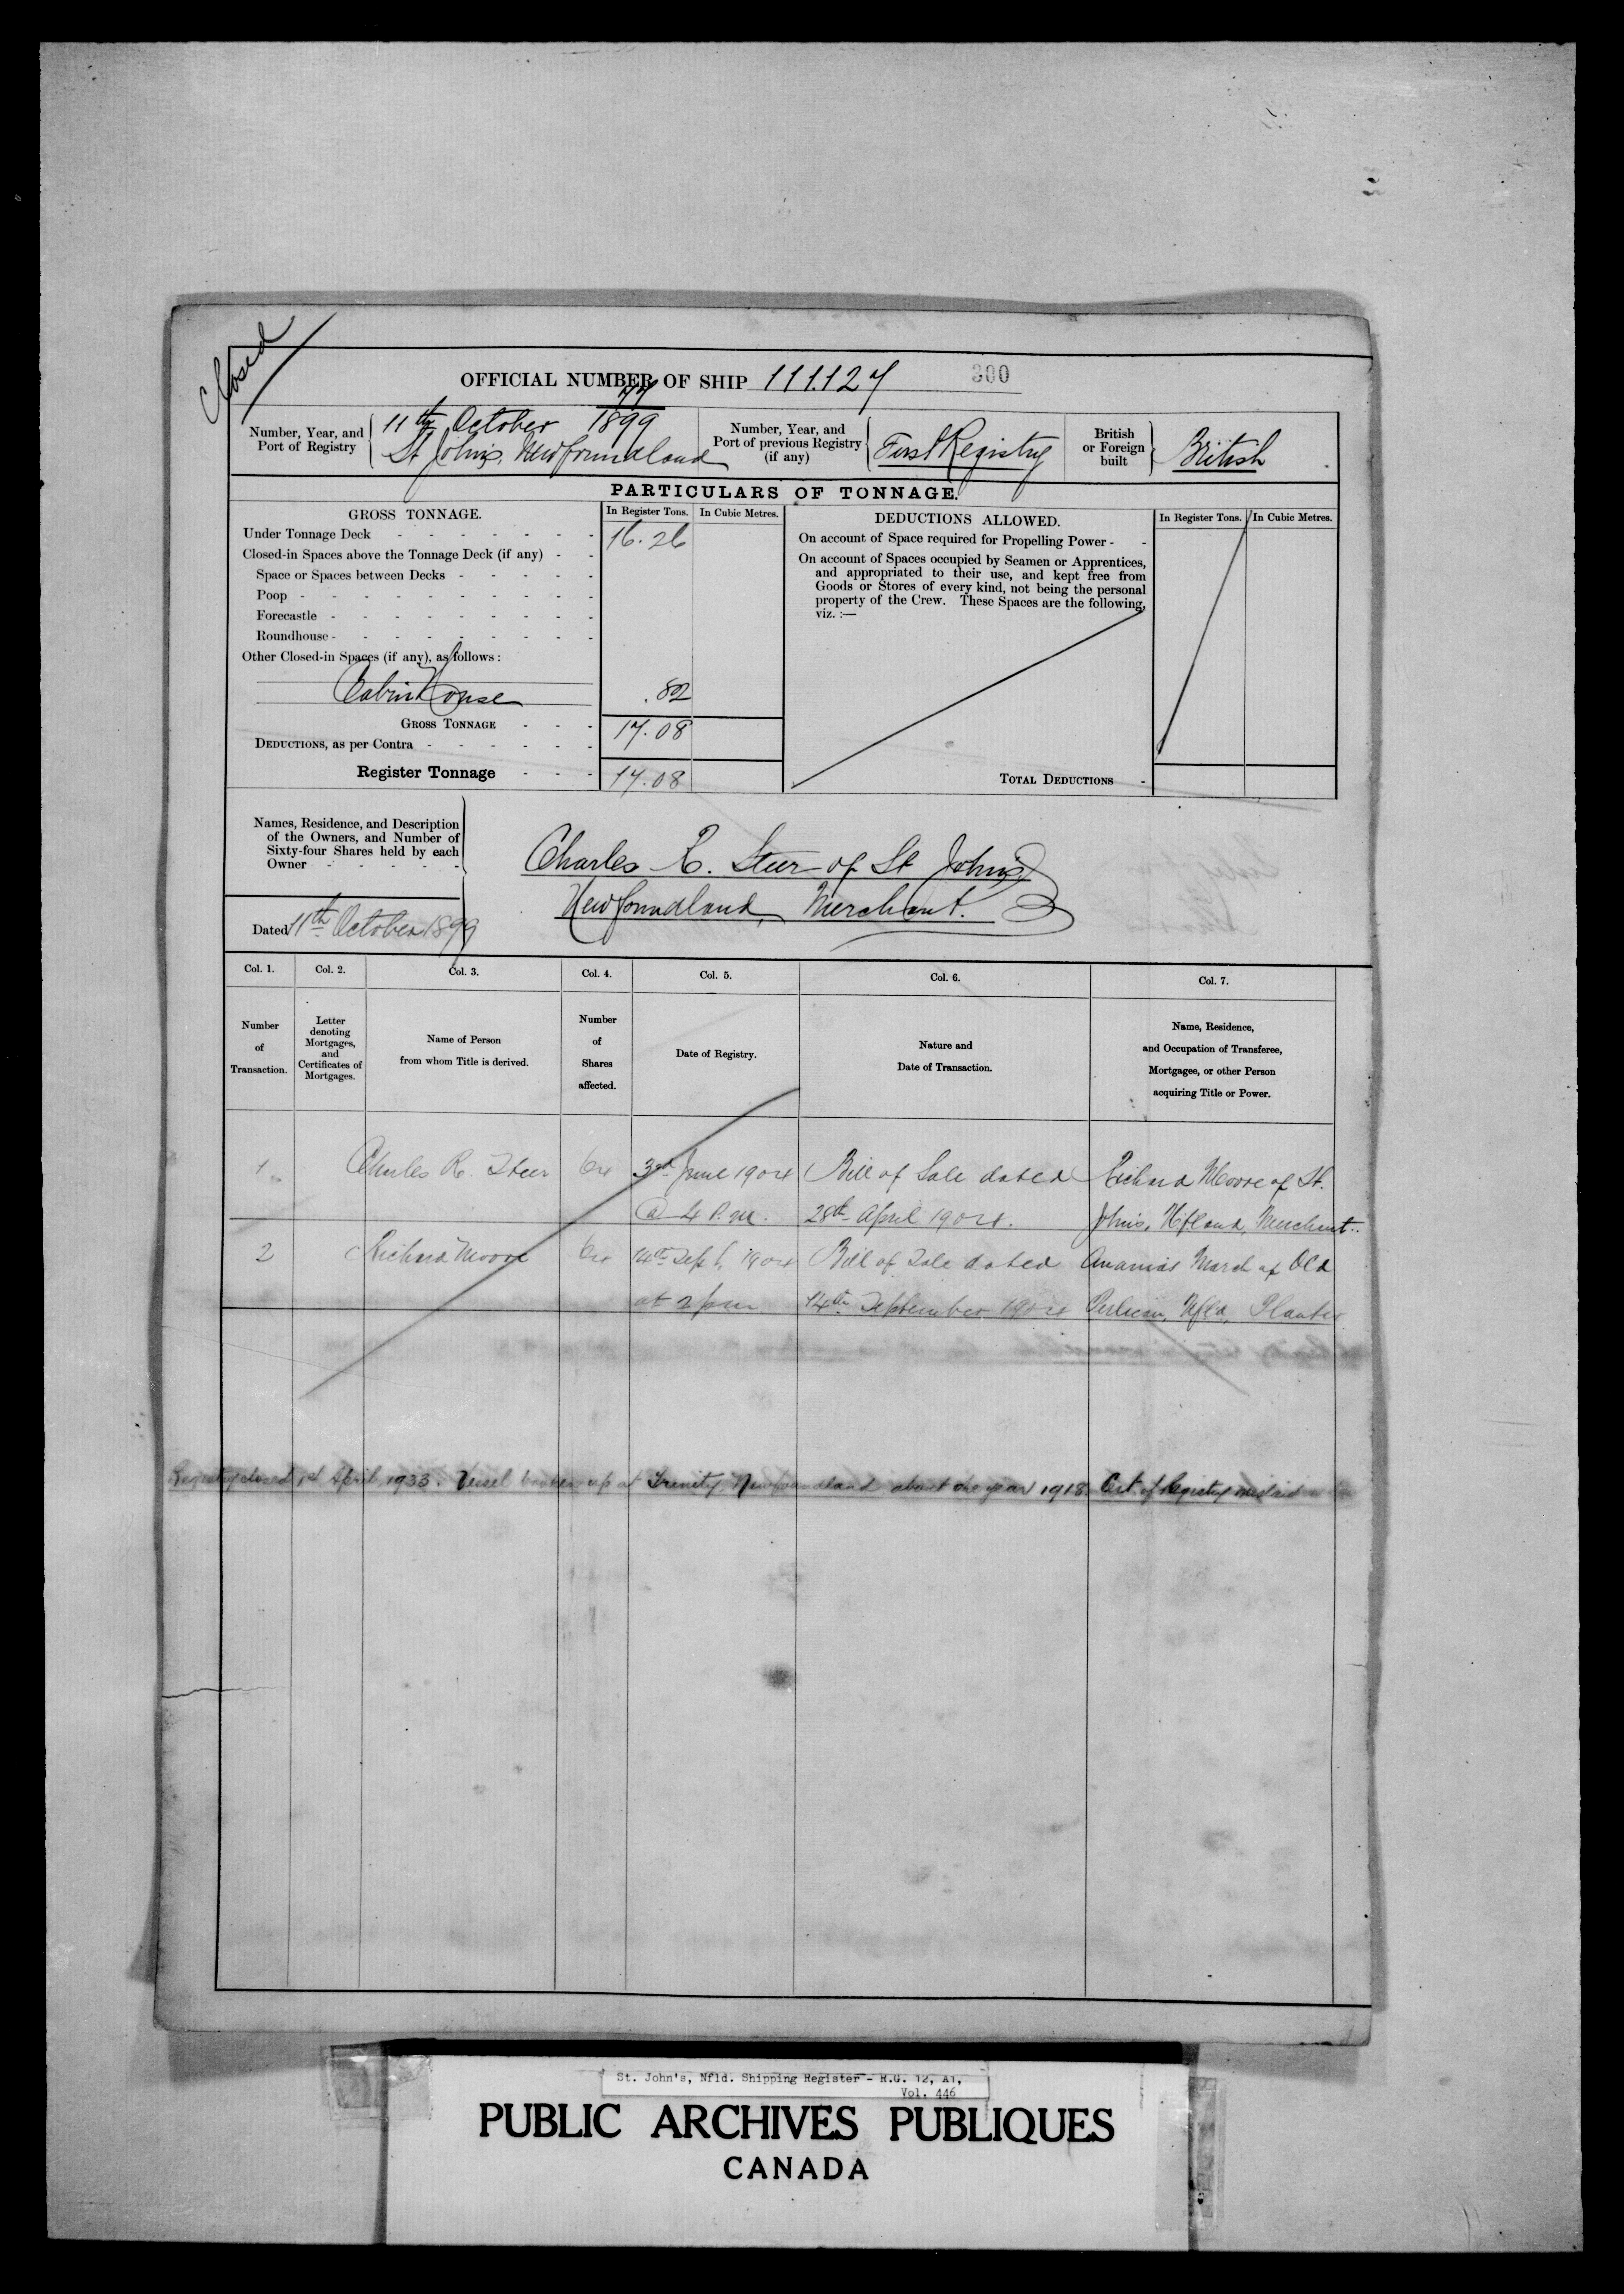 Closed
OFFICIAL NUMBER OF SHIP 111.127 300
77
Number, Year, and Port of Registry 11th October 1899
St Johns, Newfoundland
Number, Year, and Port of previous Registry (if any) First Registry
British or Foreign built British
PARTICULARS OF TONNAGE.
GROSS TONNAGE. In Register Tons. In Cubic Metres.
Under Tonnage Deck 16.26
Closed-in Spaces above the Tonnage Deck (if any)
Space or Spaces between Decks
Poop
Forecastle
Roundhouse
Other Closed-in Spaces (if any), as follows:
Cabin House .82
GROSS TONNAGE 17.08
DEDUCTIONS, as per Contra
Register Tonnage 17.08
DEDUCTIONS ALLOWED. In Register Tons. In Cubic Metres.
On account of Space required for Propelling Power
On account of Spaces occupied by Seamen or Apprentices,
and appropriated to their use, and kept free from
Goods or Stores of every kind, not being the personal
property of the Crew. These Spaces are the following,
viz. :—
TOTAL DEDUCTIONS
Names, Residence, and Description
of the Owners, and Number of
Sixty-four Shares held by each
Owner
Charles R. Steer of St Johns,
Newfoundland, Merchant.
Dated 11th October 1899
Col. 1. Col. 2. Col. 3. Col. 4. Col. 5. Col. 6. Col. 7.
Number
of
Transaction.
Letter
denoting
Mortgages,
and
Certificates of
Mortgages.
Name of Person
from whom Title is derived.
Number
of
Shares
affected.
Date of Registry.
Nature and
Date of Transaction.
Name, Residence,
and Occupation of Transferee,
Mortgagee, or other Person
acquiring Title or Power.
1 Charles R. Steer 64 3rd June 1904 Bill of Sale dated Richard Moore of St.
@ 4 P.M. 28th April 1904. Johns, Nfland, Merchant.
2 Richard Moore 64 14th Sept, 1904 Bill of Sale dated Ananias March of Old
at 2 pm 14th September 1904 Perlican, Nfld, Planter
Registry closed 1st April, 1933. Vessel broken up at Trinity, Newfoundland about the year 1918. Cert. of Registry mislaid
St. John's, Nfld. Shipping Register - R.G. 12, A1,
Vol. 446
PUBLIC ARCHIVES PUBLIQUES
CANADA